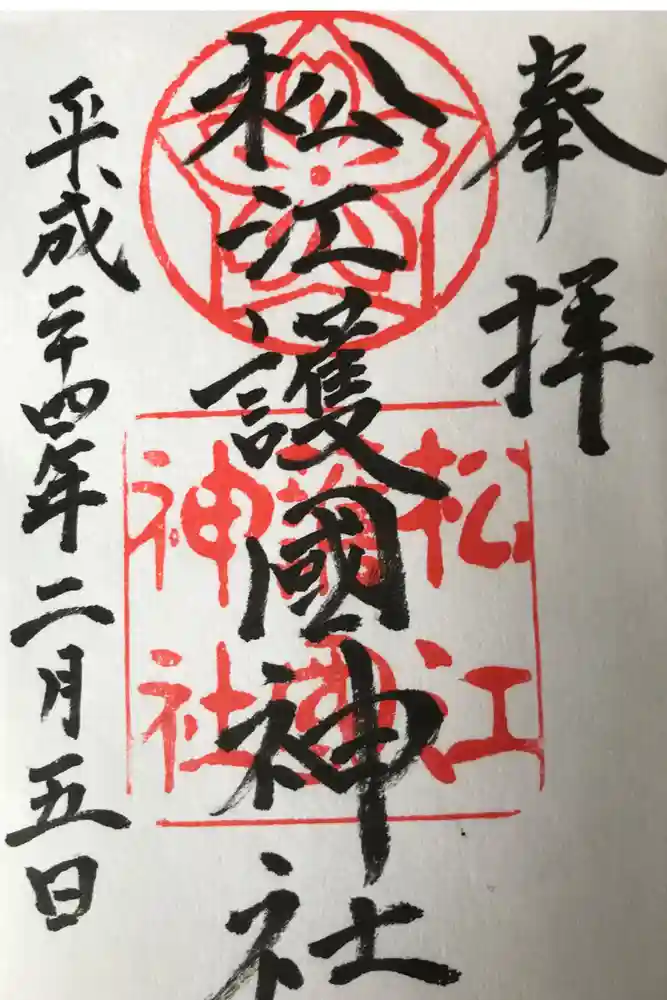 奉拝
松江護國神社
松江護國神社
平成二十四年二月五日